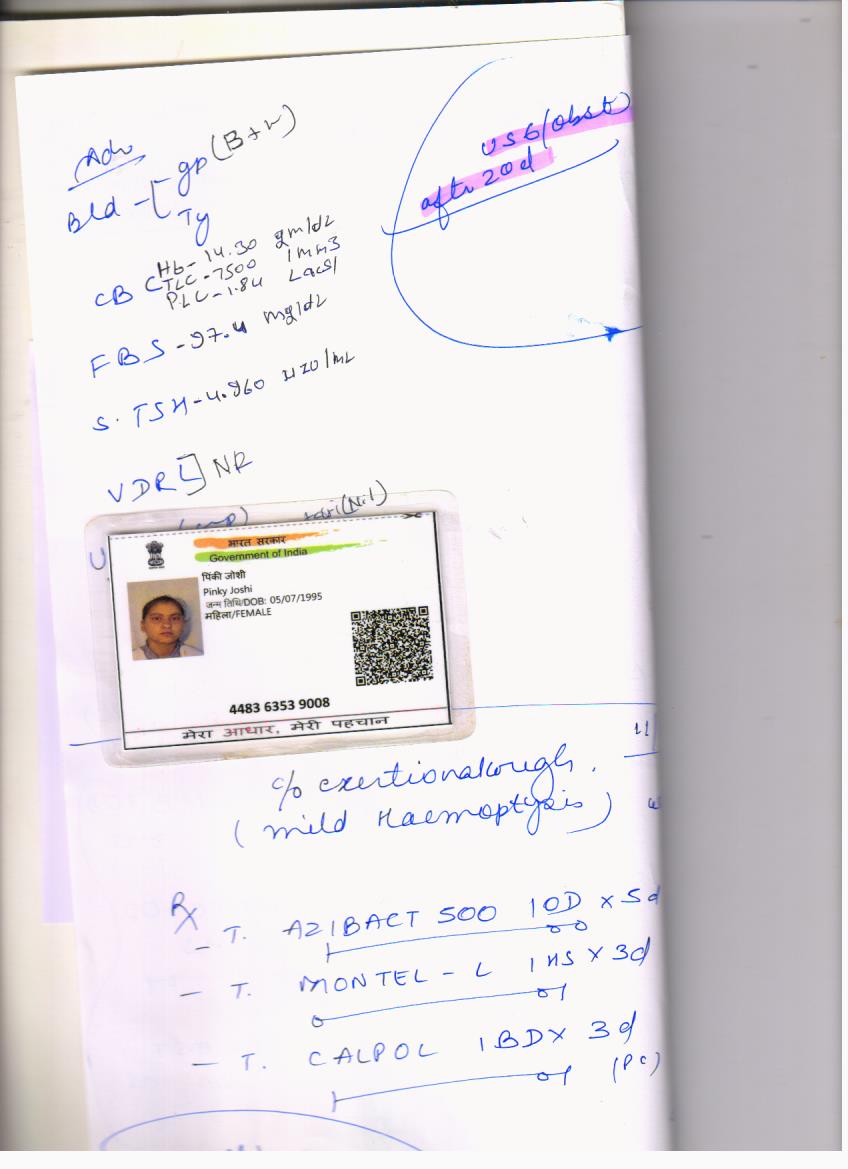 Adv
USG (Obst)
after 20d
Bld - [ gp (B+v)
Ty
CBC Hb - 14.30 gm/dL
TLC - 7500 /mm3
PLC - 1.84 Lacs/
FBS - 97.4 mg/dL
S. TSH - 4.960 uIU/mL
VDRL] NR
(Nil)
U
भारत सरकार
Government of India
पिंकी जोशी
Pinky Joshi
जन्म तिथि/DOB: 05/07/1995
महिला/FEMALE
4483 6353 9008
मेरा आधार, मेरी पहचान
11/
c/o exertional cough.
(mild Haemoptysis)
Rx
- T. AZIBACT 500 1OD x 5d
- T. MONTEL - L 1 HS x 3d
- T. CALPOL 1BD x 3d
(PC)